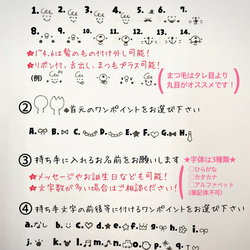 1. 2. 3. 4. 5. 6. 7.
8. 9. 10. 11. 12. 13. 14.
付け外し可能!
リボン付、舌出し、まつもプラス可能!
(例)
まつ毛はタレ目より
丸目がオススメです!
② 首元のワンポイントをお選び下さい
A. B. C. D. E. F. G. H.
③ 持ち手に入れるお名前をお願いします
★メッセージやお誕生日なども可能!
★文字数が多い場合はご相談ください!
★字体は3種類★
ひらがな
カタカナ
アルファベット
(筆記体不可)
④ 持ち手文字の前後等に付けるワンポイントをお選び下さい
a. b. c. d. e. f. g. h. i.
j. k. l. m. n. o. p. q.